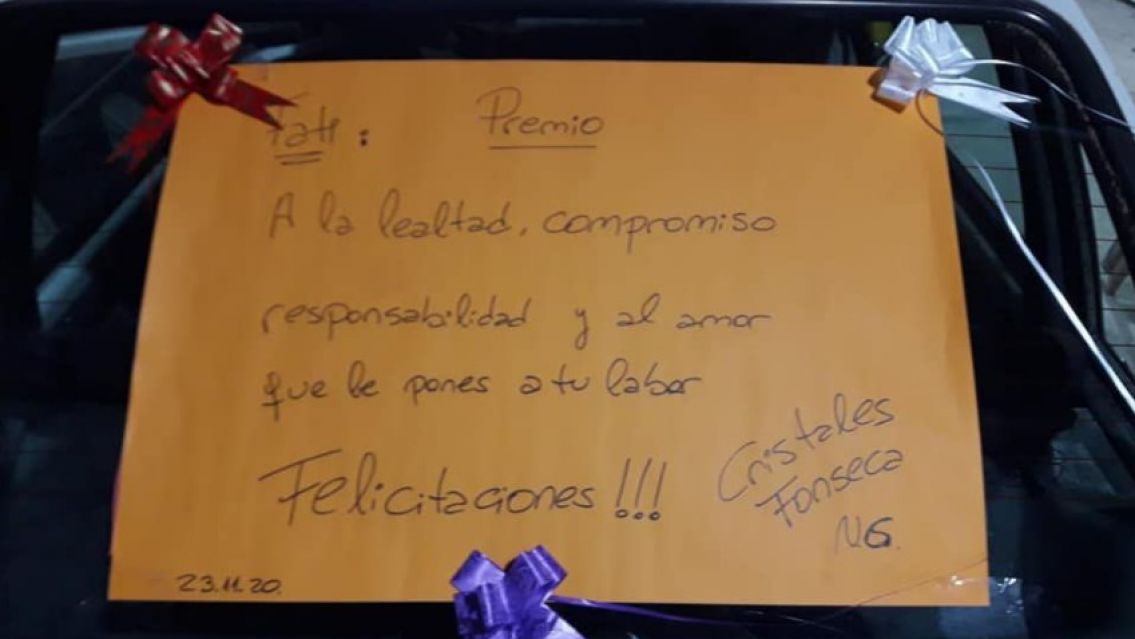 Fati: Premio
A la lealtad, compromiso
responsabilidad y al amor
que le pones a tu labor
Felicitaciones!!!
Cristales
Fonseca
NG.
23.11.20.